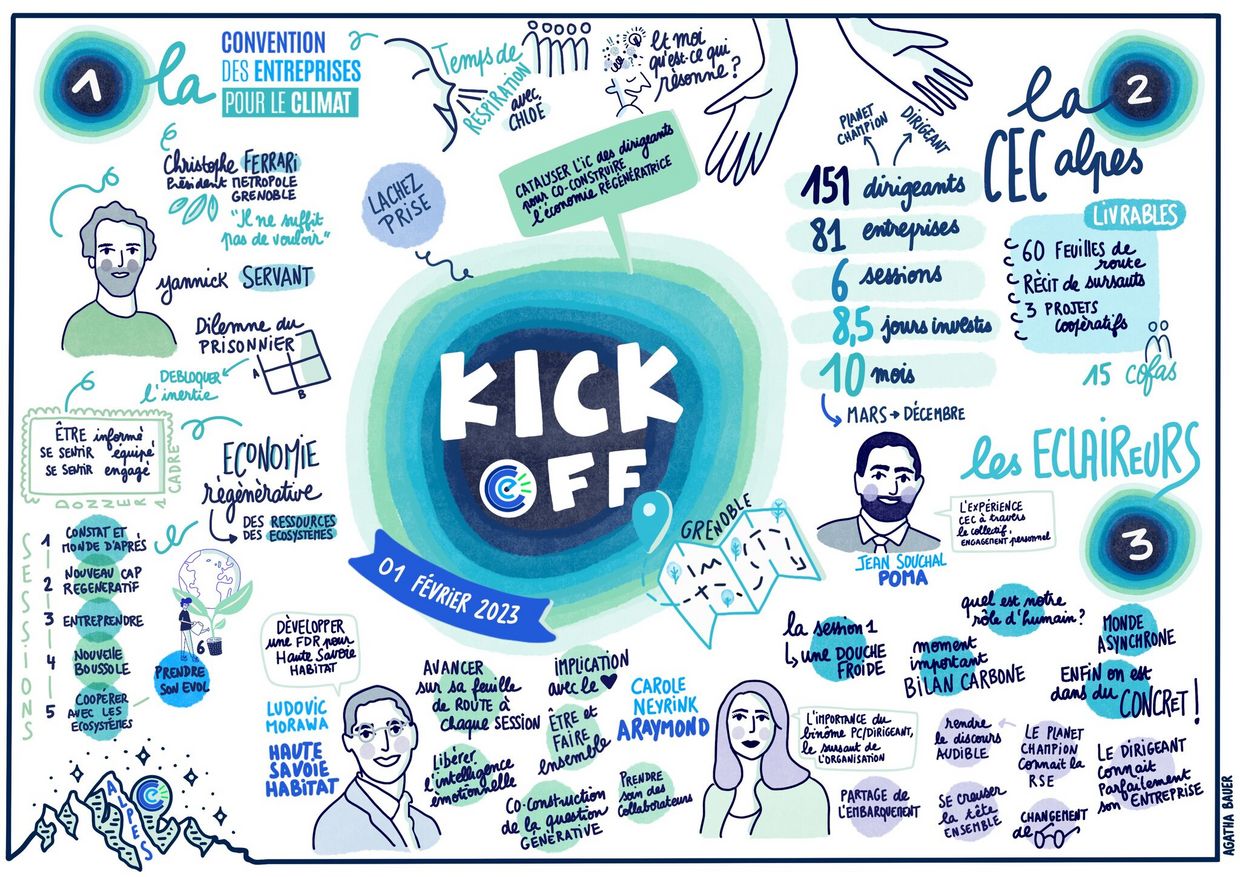 1
la
CONVENTION
DES ENTREPRISES
POUR LE CLIMAT
Christophe FERRARI
Président METROPOLE
GRENOBLE
"Il ne suffit
pas de vouloir"
yannick SERVANT
Dilemne du
PRISONNIER
A
B
DEBLOQUER
l'inertie
ÊTRE informé
SE SENTIR équipé
SE SENTIR engagé
DONNER 1 CADRE
ECONOMIE
régénérative
DES RESSOURCES
DES ECOSYSTÈMES
SESSIONS
1 CONSTAT ET
MONDE D'APRÉS
2 NOUVEAU CAP
REGENERATIF
3 ENTREPRENDRE
4 NOUVELLE
BOUSSOLE
5 COOPÉRER
AVEC LES
ECOSYSTÈMES
6
PRENDRE
SON EVOL
ALPES
Temps de
RESPIRATION
avec
CHLOE
Et moi
qu'est-ce qui
résonne?
LACHEZ
PRISE
CATALYSER L'IC des dirigeants
pour CO-CONSTRUIRE
l'économie RÉGÉNÉRATRICE
KICK
OFF
01 FÉVRIER 2023
GRENOBLE
2
la
CEC alpes
PLANET
CHAMPION
DIRIGEANT
151 dirigeants
81 entreprises
6 sessions
8,5 jours investis
10 mois
MARS → DÉCEMBRE
LIVRABLES
60 FEUILLES de
route
RÉCIT de sursauts
3 PROJETS
coopératifs
15 cofas
les ECLAIREURS
3
L'EXPÉRIENCE
CEC à travers
le collectif,
ENGAGEMENT personnel
JEAN SOUCHAL
POMA
la session 1
une DOUCHE
FROIDE
quel est notre
rôle d'humain?
moment
important
BILAN CARBONE
MONDE
ASYNCHRONE
ENFIN on est
dans du CONCRET!
DÉVELOPPER
une FDR pour
Haute Savoie
HABITAT
LUDOVIC
MORAWA
HAUTE
SAVOIE
HABITAT
AVANCER
sur sa feuille
de ROUTE à
chaque SESSION
IMPLICATION
avec le ♥
ÊTRE et
FAIRE
ensemble
Libérer
l'intelligence
emotionnelle
Co-Construction
de la question
GÉNÉRATIVE
PRENDRE
soin des
Collaborateurs
CAROLE
NEYRINK
ARAYMOND
L'IMPORTANCE du
binôme PC/DIRIGEANT,
le sursaut de
L'ORGANISATION
PARTAGE de
L'EMBARQUEMENT
rendre
le discours
AUDIBLE
LE PLANET
CHAMPION
connait la
RSE
LE DIRIGEANT
connait
parfaitement
son ENTREPRISE
SE creuser
la tête
ENSEMBLE
CHANGEMENT
de
AGATHA BAUER